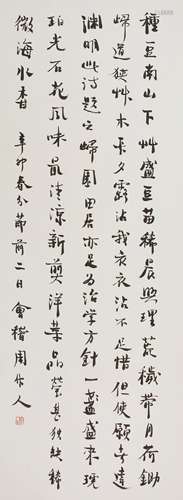 種豆南山下艸盛豆苗稀晨興理荒穢帶月荷鋤
歸道狹艸木長夕露沾我衣衣沾不足惜但使願無違
淵明此詩題之歸園田居亦足為治学方針一盞盛來琥
珀光石花風味最清涼新煎洋菜晶瑩甚独缺稀
微海水香 辛卯春分節前二日會稽周作人